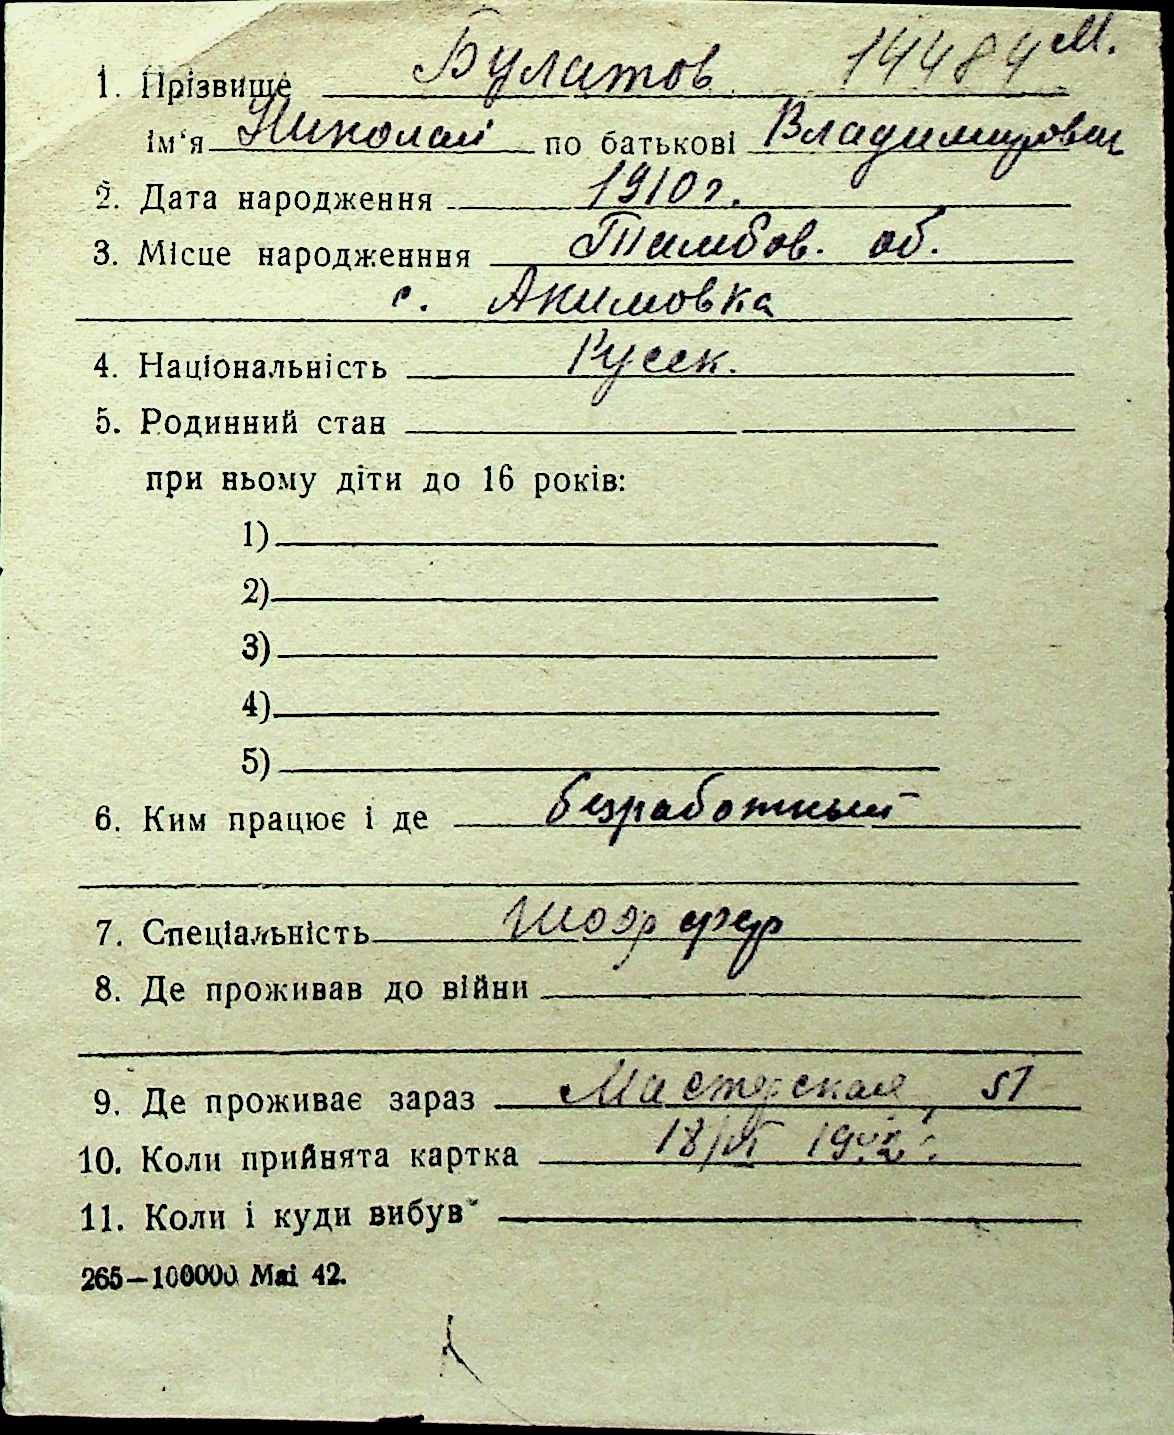 1. Прізвище Булатов 14484 М.
ім'я Николай по батькові Владимирович
2. Дата народження 1910 г.
3. Місце народженння Тамбов. об.
с. Акимовка
4. Національність Русск.
5. Родинний стан
при ньому діти до 16 років:
1)
2)
3)
4)
5)
6. Ким працює і де безработный
7. Спеціальність Шоффер
8. Де проживав до війни
9. Де проживає зараз Мастерская, 51
10. Коли прийнята картка 18/VI 1942 г.
11. Коли і куди вибув
265—100000 Mai 42.